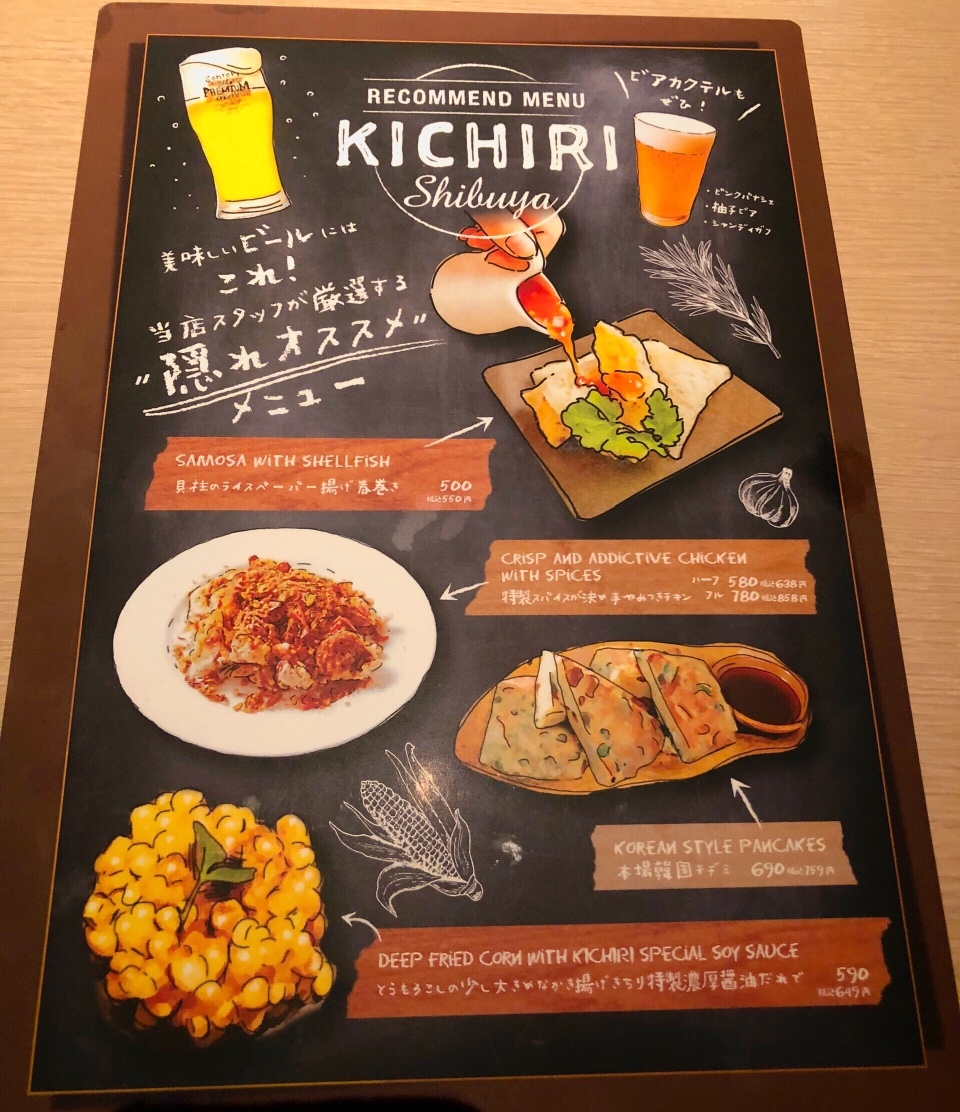 SUNTORY
PREMIUM
RECOMMEND MENU
KICHIRI
Shibuya
ビアカクテルも
ぜひ!
・ピンクパナシェ
・柚子ビア
・シャンディガフ
美味しいビールには
これ!
当店スタッフが厳選する
"隠れオススメ"
メニュー
SAMOSA WITH SHELLFISH
貝柱のライスペーパー揚げ春巻き 500
税込550円
CRISP AND ADDICTIVE CHICKEN
WITH SPICES ハーフ 580 税込638円
特製スパイスが決め手やみつきチキン フル 780 税込858円
KOREAN STYLE PANCAKES
本場韓国チヂミ 690 税込759円
DEEP FRIED CORN WITH KICHIRI SPECIAL SOY SAUCE
とうもろこしの少し大きめなかき揚げきちり特製濃厚醤油だれで 590
税込649円